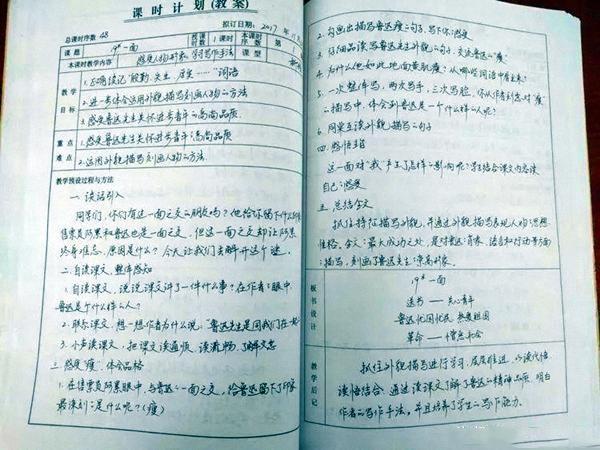 课时计划(教案)
拟订日期:2017
总课时序数 48
授课时数
1课时
本课时序数
第1
课题
19*一面
课型
本课时教学内容
感受人物形象,学习写作手法
教学目标
1.正确读记"殷勤、失业、……"词语
2.进一步体会运用外貌描写刻画人物的方法
3.感受鲁迅先生关怀进步青年的高尚品质.
重点难点
1.感受鲁迅先生关怀进步青年的高尚品质
2.运用外貌描写刻画人物的方法.
教学预设过程与方法
一、谈话引入
同学们,你们有过一面之交的朋友吗?他给你留下什么
售票员阿累和鲁迅也是一面之交,但这一面之交却让阿累
终身难忘,原因是什么?今天让我们去解开这个谜.
二、自读课文,整体感知
1.自读课文,说说课文讲了一件什么事?在作者的眼中,
鲁迅是个什么样的人?
2.联系课文,想一想作者为什么说,"鲁迅先生是同我们在一起
3.小声读课文,把课文读通顺、读流畅,了解文意
三、感受"瘦",体会品格
1.在售票员阿累眼中,与鲁迅的一面之交,给鲁迅留下了印象
最深刻的是什么呢?(瘦)
2.勾画出描写鲁迅瘦的句子,写下你的感受
3.仔细品读写鲁迅先生外貌的句子,交流鲁迅的"瘦"
4.为什么他如此地面黄肌瘦?从哪些词语中看出来?
5.一次整体写,两次写手,三次写脸,你从作者刻画对"瘦"
的描写中,体会到鲁迅是一个什么样的人呢?
6.同桌互读外貌描写的句子
四、感悟主旨
这一面对"我"产生了怎样的影响呢?学生结合课文内容谈
自己的感受
五、总结全文
抓住特征描写外貌,并通过外貌描写表现人物的思想
性格,全文的最大成功之处,是对鲁迅肖像、语言和行动等方面
的描写,刻画了鲁迅先生的崇高形象.
板书设计
19*一面
送书——关心青年
鲁迅忧国忧民 热爱祖国
革命——憎恶社会
教学后记
抓住外貌描写进行学习,层层推进,以读代悟
读悟结合,通过读课文了解了鲁迅的精神品质,明白
作者的写作手法,并且培养了学生的写作能力.